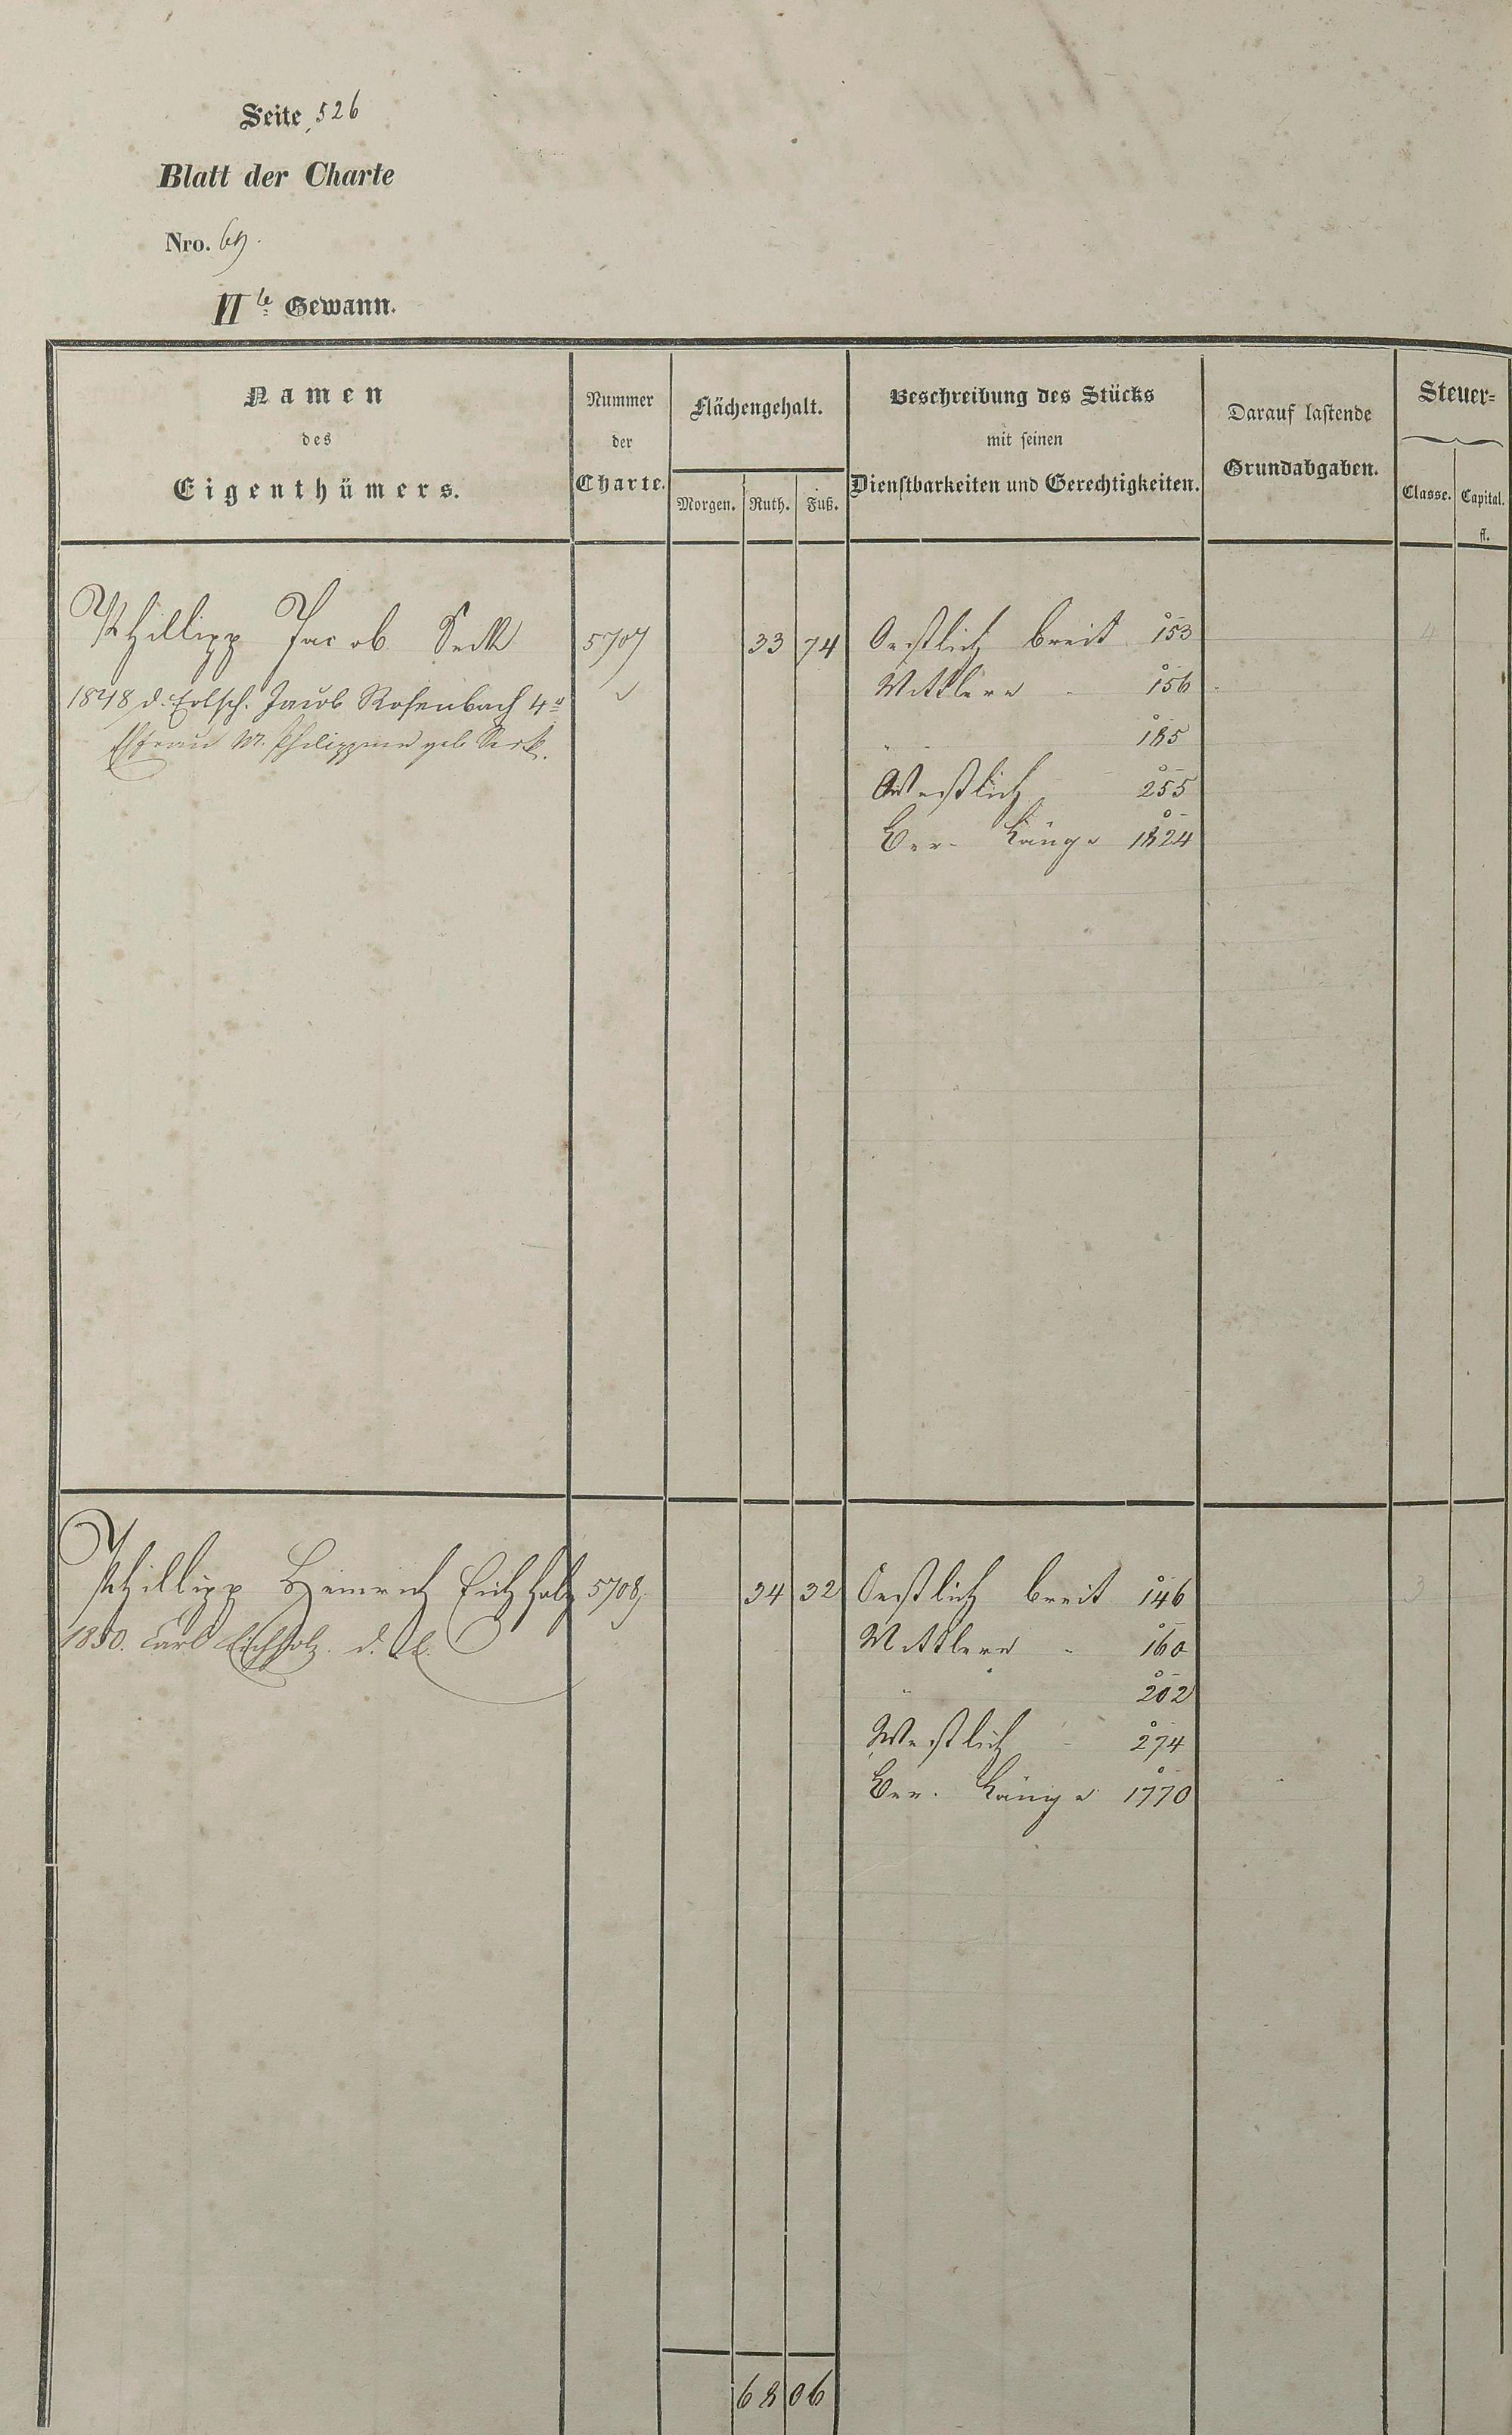 Seite 526
Blatt der Charte
Nro. 69.
II te Gewann.
Namen
des
Eigenthümers.
Nummer
der
Charte.
Flächengehalt.
Morgen. Ruth. Fuß.
Beschreibung des Stücks
mit seinen
Dienstbarkeiten und Gerechtigkeiten.
Darauf lastende
Grundabgaben.
Steuer=
Classe. Capital.
fl.
Phillipp Jacob Seck 5707 33 74 Oestlich breit 153 4
1848 d. Erbsch. Jacob Rosenbach 4r Mittlere - 156
Efrau M. Philippine geb. Seck. " - 185
Westlich - 255
Ber. Länge 1824
Phillipp Heinrich Eichholz 5708 34 32 Oestlich breit 146 3
1850. Carl Eichholz. Mittlere - 160
" 202
Westlich - 274
Ber. Länge 1770
68 06